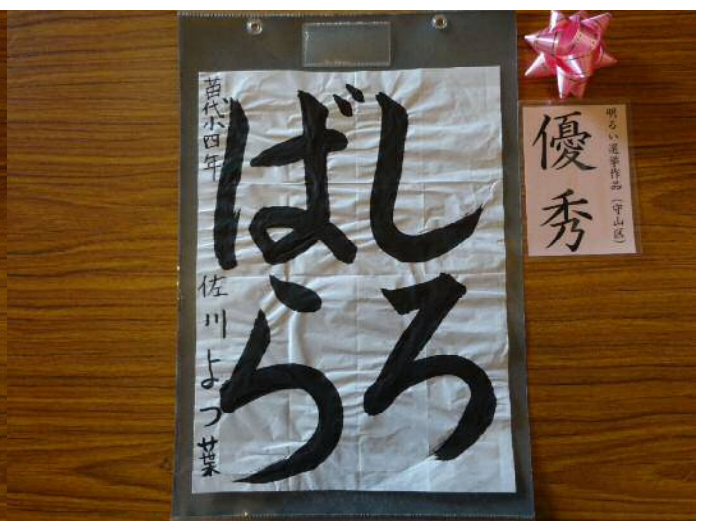 明るい選挙作品（守山区）
優秀
しろ
ばら
苗代小四年 佐川よつ葉